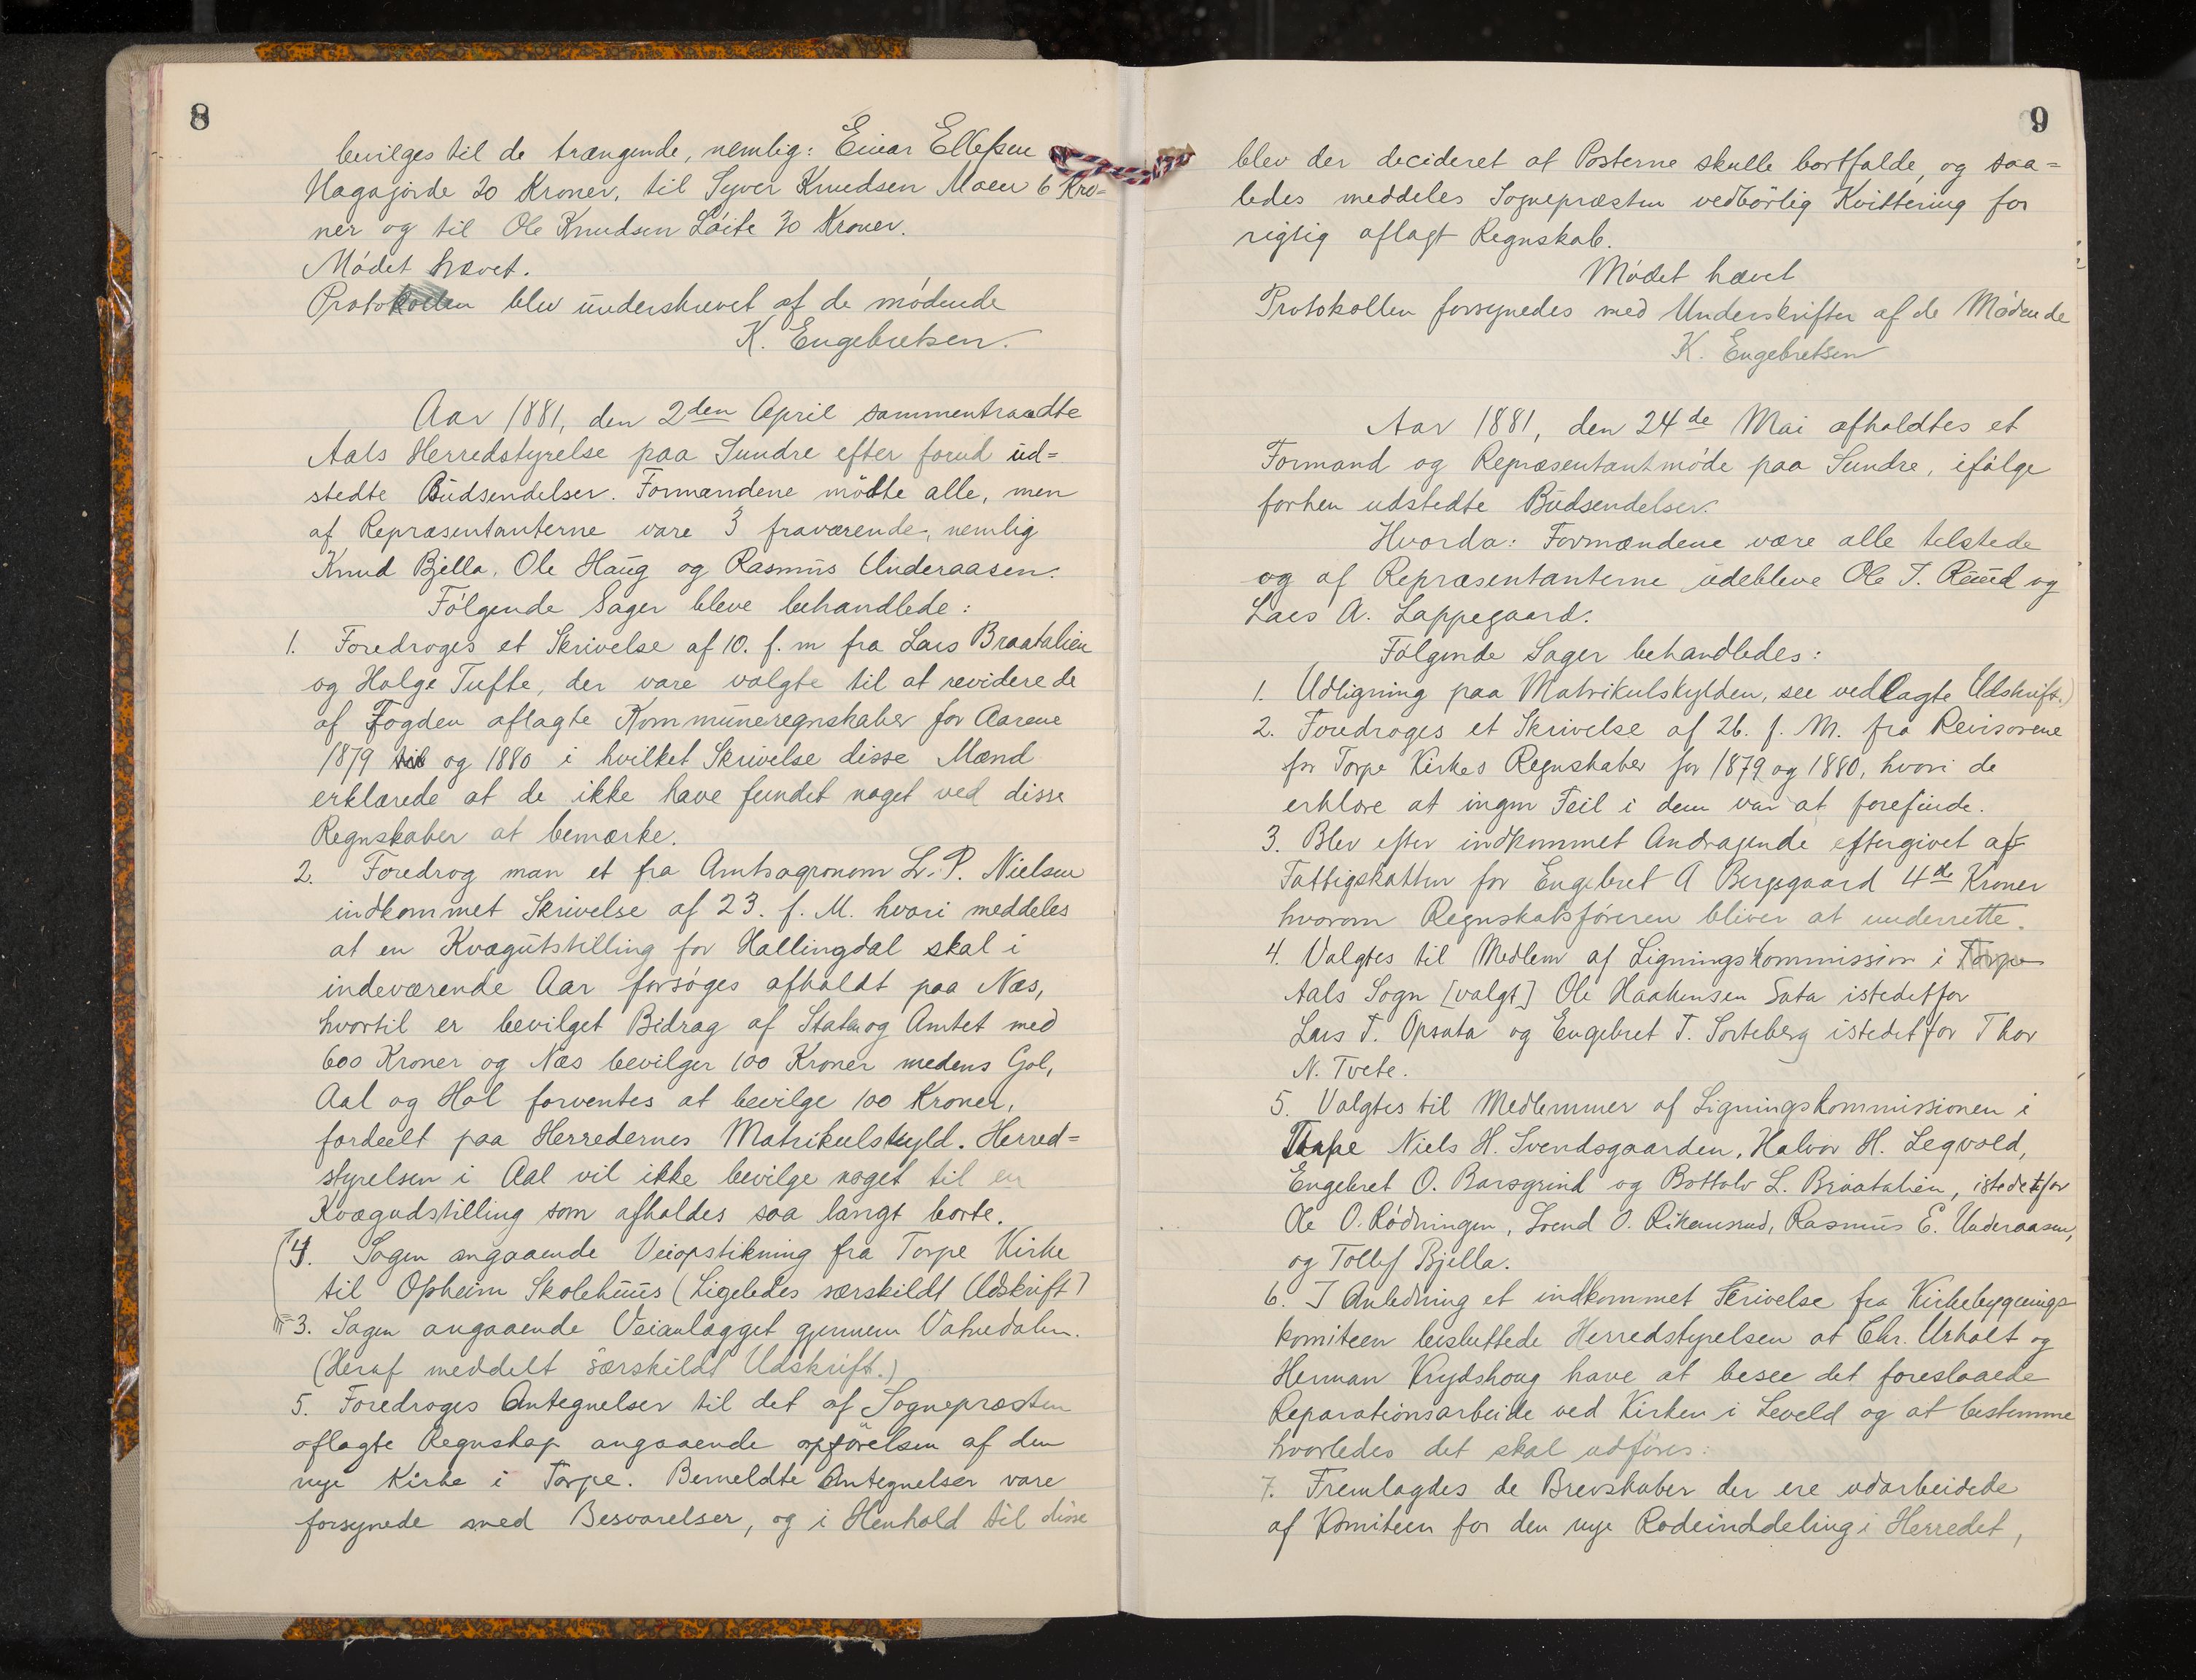 8
bevilges til de trængende, nemlig: Einar Ellefsen
Hagajorde 20 Kroner, til Syver Knudsen Moen 6 Kro=
ner og til Ole Knudsen Löite 30 Kroner.
Mödet hævet.
Protokollen blev underskrevet af de mödende
K. Engebretsen.
Aar 1881, den 2den April sammentraadte
Aals Herredstyrelse paa Sundre efter forud ud=
stedte Budsendelser. Formændene mödte alle, men
af Repræsentanterne vare 3 fraværende, nemlig
Knud Bjella, Ole Haug og Rasmus Underaasen.
Fölgende Sager bleve behandlede:
1. Foredroges et Skrivelse af 10. f. m fra Lars Braatalien
og Holge Tufte, der vare valgte til at revidere de
af Fogden aflagte Kommuneregnskaber for Aarene
1879 til og 1880 i hvilket Skrivelse disse Mænd
erklærede at de ikke have fundet noget ved disse
Regnskaber at bemærke.
2. Foredrog man et fra Amtsagronom L. P. Nielsen
indkommet Skrivelse af 23. f. M. hvori meddeles
at en Kvægutstilling for Hallingdal skal i
indeværende Aar forsöges afholdt paa Næs,
hvortil er bevilget Bidrag af Staten og Amtet med
600 Kroner og Næs bevilger 100 Kroner medens Gol,
Aal og Hol forventes at bevilge 100 Kroner,
fordeelt paa Herredernes Matrikulskyld. Herred=
styrelsen i Aal vil ikke bevilge noget til en
Kvægudstilling som afholdes saa langt borte.
4. Sagen angaaende Veiopstikning fra Torpe Kirke
til Opheim Skolehuus (Ligeledes særskildt Udskrift)
3. Sagen angaaende Veianlægget gjennem Vatsedalen.
(Heraf meddelt særskildt Udskrift.)
5. Foredroges Antegnelser til det af Sognepræsten
aflagte Regnskap angaaende opförelsen af den
nye Kirke i Torpe. Bemeldte Antegnelser vare
forsynede med Besvarelser, og i Henhold til disse
9
blev der decideret at Posterne skulle bortfalde, og saa=
ledes meddeles Sognepræsten vedbörlig Kvittering for
rigtig aflagt Regnskab.
Mödet hævet
Protokollen forsynedes med Underskrifter af de Mödende
K. Engebretsen
Aar 1881, den 24de Mai afholdtes et
Formand og Repræsentantmöde paa Sundre, ifölge
forhen udstedte Budsendelser.
Hvorda: Formændene vare alle tilstede
og af Repræsentanterne udebleve Ole T. Ruud og
Lars A. Lappegaard.
Fölgende Sager behandledes:
1. Udligning paa Matrikulskylden, see vedlagte Udskrift.)
2. Foredroges et Skrivelse af 26. f. M. fra Revisorene
for Torpe Kirkes Regnskaber for 1879 og 1880, hvori de
erklære at ingen Feil i dem var at forefinde.
3. Blev efter indkommet Andragende eftergivet af
Fattigskatten for Engebret A Berggaard 4de Kroner
hvorom Regnskabsföreren bliver at underrette.
4. Valgtes til Medlem af Ligningskommission i Torpe
Aals Sogn [valgt] Ole Haakensen Sata istedetfor
Lars T. Opsata og Engebret T. Sorteberg istedetfor Thor
N. Tvete.
5. Valgtes til Medlemmer af Ligningskommissionen i
Torpe Niels H. Svendsgaarden, Halvor H. Legvold,
Engebret O. Barsgrind og Bottolv L. Braatalien, istedetfor
Ole O. Rödningen, Svend O. Rikensrud, Rasmus E. Underaasen,
og Tollef Bjella.
6. I Anledning et indkommet Skrivelse fra Kirkebygnings
komiteen besluttede Herredstyrelsen at Chr. Urholt og
Herman Krydshoug have at besee det foreslaaede
Reparationsarbeide ved Kirken i Leveld og at bestemme
hvorledes det skal udföres:
7. Fremlagdes de Brevskaber der ere udarbeidede
af Komiteen for den nye Rodeinddeling i Herredet,